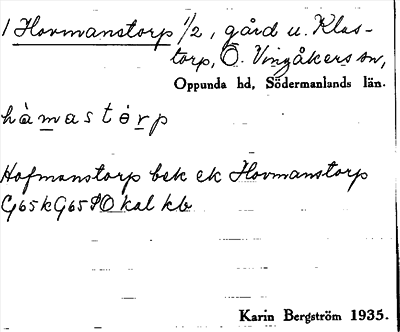 1 Hovmanstorp 1/2, gård u. Klas-
torp, Ö. Vingåkers sn,
Oppunda hd, Södermanlands län.
hàmastȯrp
Hofmanstorp bek ek Hovmanstorp
G65k G65 PO kal kb
Karin Bergström 1935.